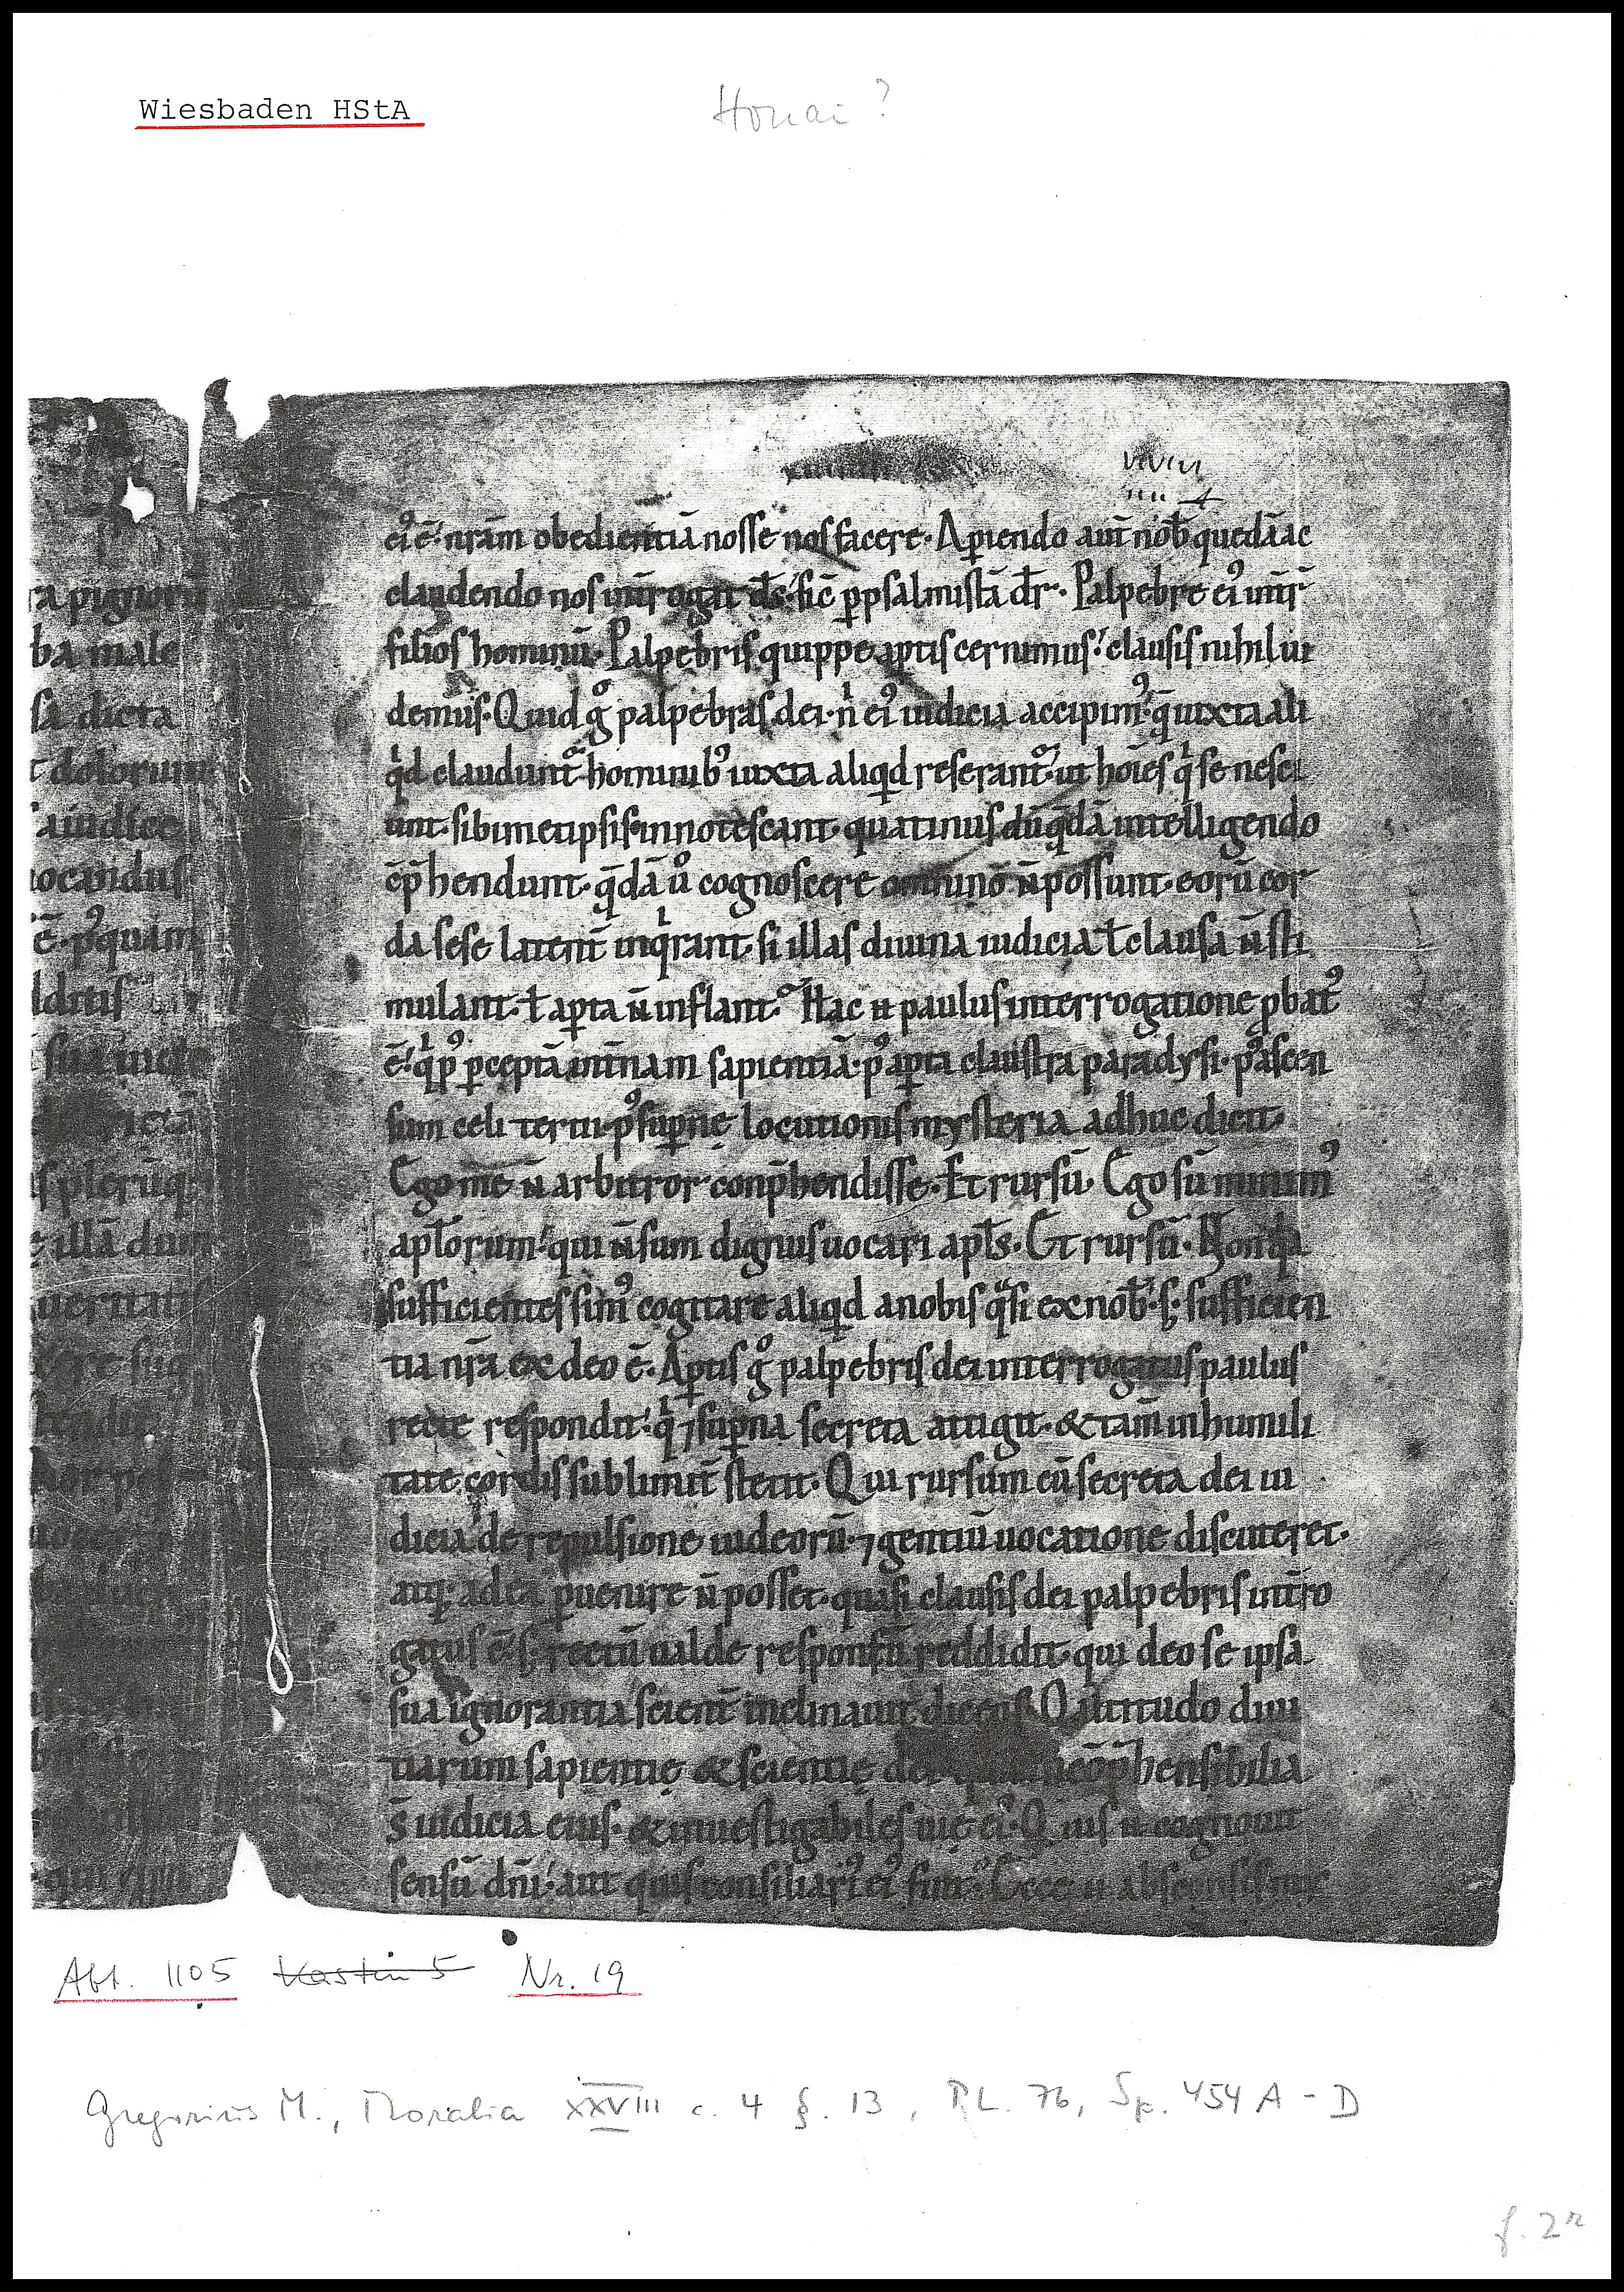 Wiesbaden HStA
ra pignora
ba male
sa dicta
t dolorum
a iudice
uocandus
ē. pꝰquam
lditis
s plerūq;
illā dum
ueritati
eiꝰ ē. nr̄am obedientiā nosse nos facere. Aꝑiendo aut̄ nob̄ quedā ac
claudendo nos int̄rogat d̄s. sic̄ ꝑ psalmistā d̄r. Palpebre eiꝰ int̄r
filios hominū. Palpebris quippe aꝑtis cernimus. clausis nihil ui
demus. Quid gͦ palpebras dei. nͥ eiꝰ iudicia accipimꝰ. q̄ iuxta ali
qͥd claudunt᷑ hominibꝰ iuxta aliqͥd reserant᷑. ut hoīes qͥ se nesci
unt. sibimetipsis innotescant. quatinus dū q̄dā intelligendo
cōp̄hendunt. q̄dā uͦ cognoscere omnino n̄ possunt. eorū cor
da sese latent̄ inqͥrant. si illas diuina iudicia ł clausa n̄ sti
mulant. ł aꝑta n̄ inflant. Hac et paulus interrogatione ꝓbatꝰ
ē. qͥ pꝰ ꝑceptā int̄nam sapientiā. pꝰ aꝑta claustra paradysi. pꝰ ascen
sum celi tertii. pꝰ suꝑnę locutionis mysteria adhuc dicit.
Ego me n̄ arbitror conp̄hendisse. Et rursū. Ego sū minimꝰ
apłorum. qui n̄ sum dignus uocari apłs. Et rursū. Non qͣ
sufficientes simꝰ cogitare aliqͥd a nobis qͣsi ex nob̄. s; sufficien
tia nr̄a ex deo ē. Aꝑtis gͦ palpebris dei interrogatus paulus
recte respondit. qͥ ⁊ suꝑna secreta attigit. & tam̄ in humili
tate cordis sublimit̄ stetit. Qui rursum cū secreta dei iu
dicia de repulsione iudeorū. ⁊ gentiū uocatione discuteret.
atq; ad ea ꝑuenire n̄ posset. quasi clausis dei palpebris int̄ro
gatus ē. s; rectū ualde responsū reddidit. qui deo se ipsa
sua ignorantia scient̄ inclinauit dicens. O altitudo diui
tiarum sapientię & scientię dei. quam incōp̄hensibilia
s̄ iudicia eius. & inuestigabiles uię eiꝰ. Quis n̄ cognouit
sensū dn̄i. aut quis consiliariꝰ eiꝰ fuit.
Abt. 1105 Kasten 5 Nr. 19
Gregorius M., Moralia XXVIII c. 4 §. 13, PL. 76, Sp. 454 A - D
f. 2r